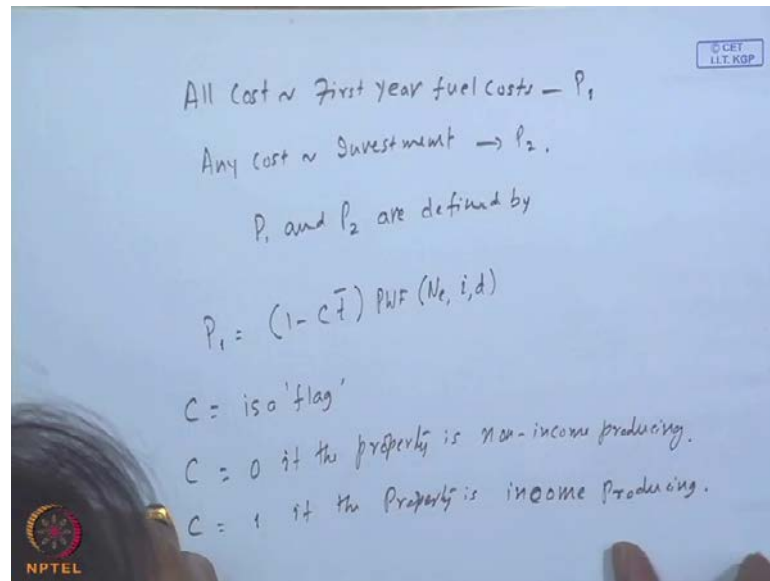 © CET
I.I.T. KGP
All Cost ~ First year fuel costs – P₁
Any Cost ~ Investment → P₂.
P₁ and P₂ are defined by
P₁ = (1 - C t̄) PWF (Ne, i, d)
C = is a 'flag'
C = 0 if the property is non-income producing.
C = 1 if the Property is income Producing.
NPTEL